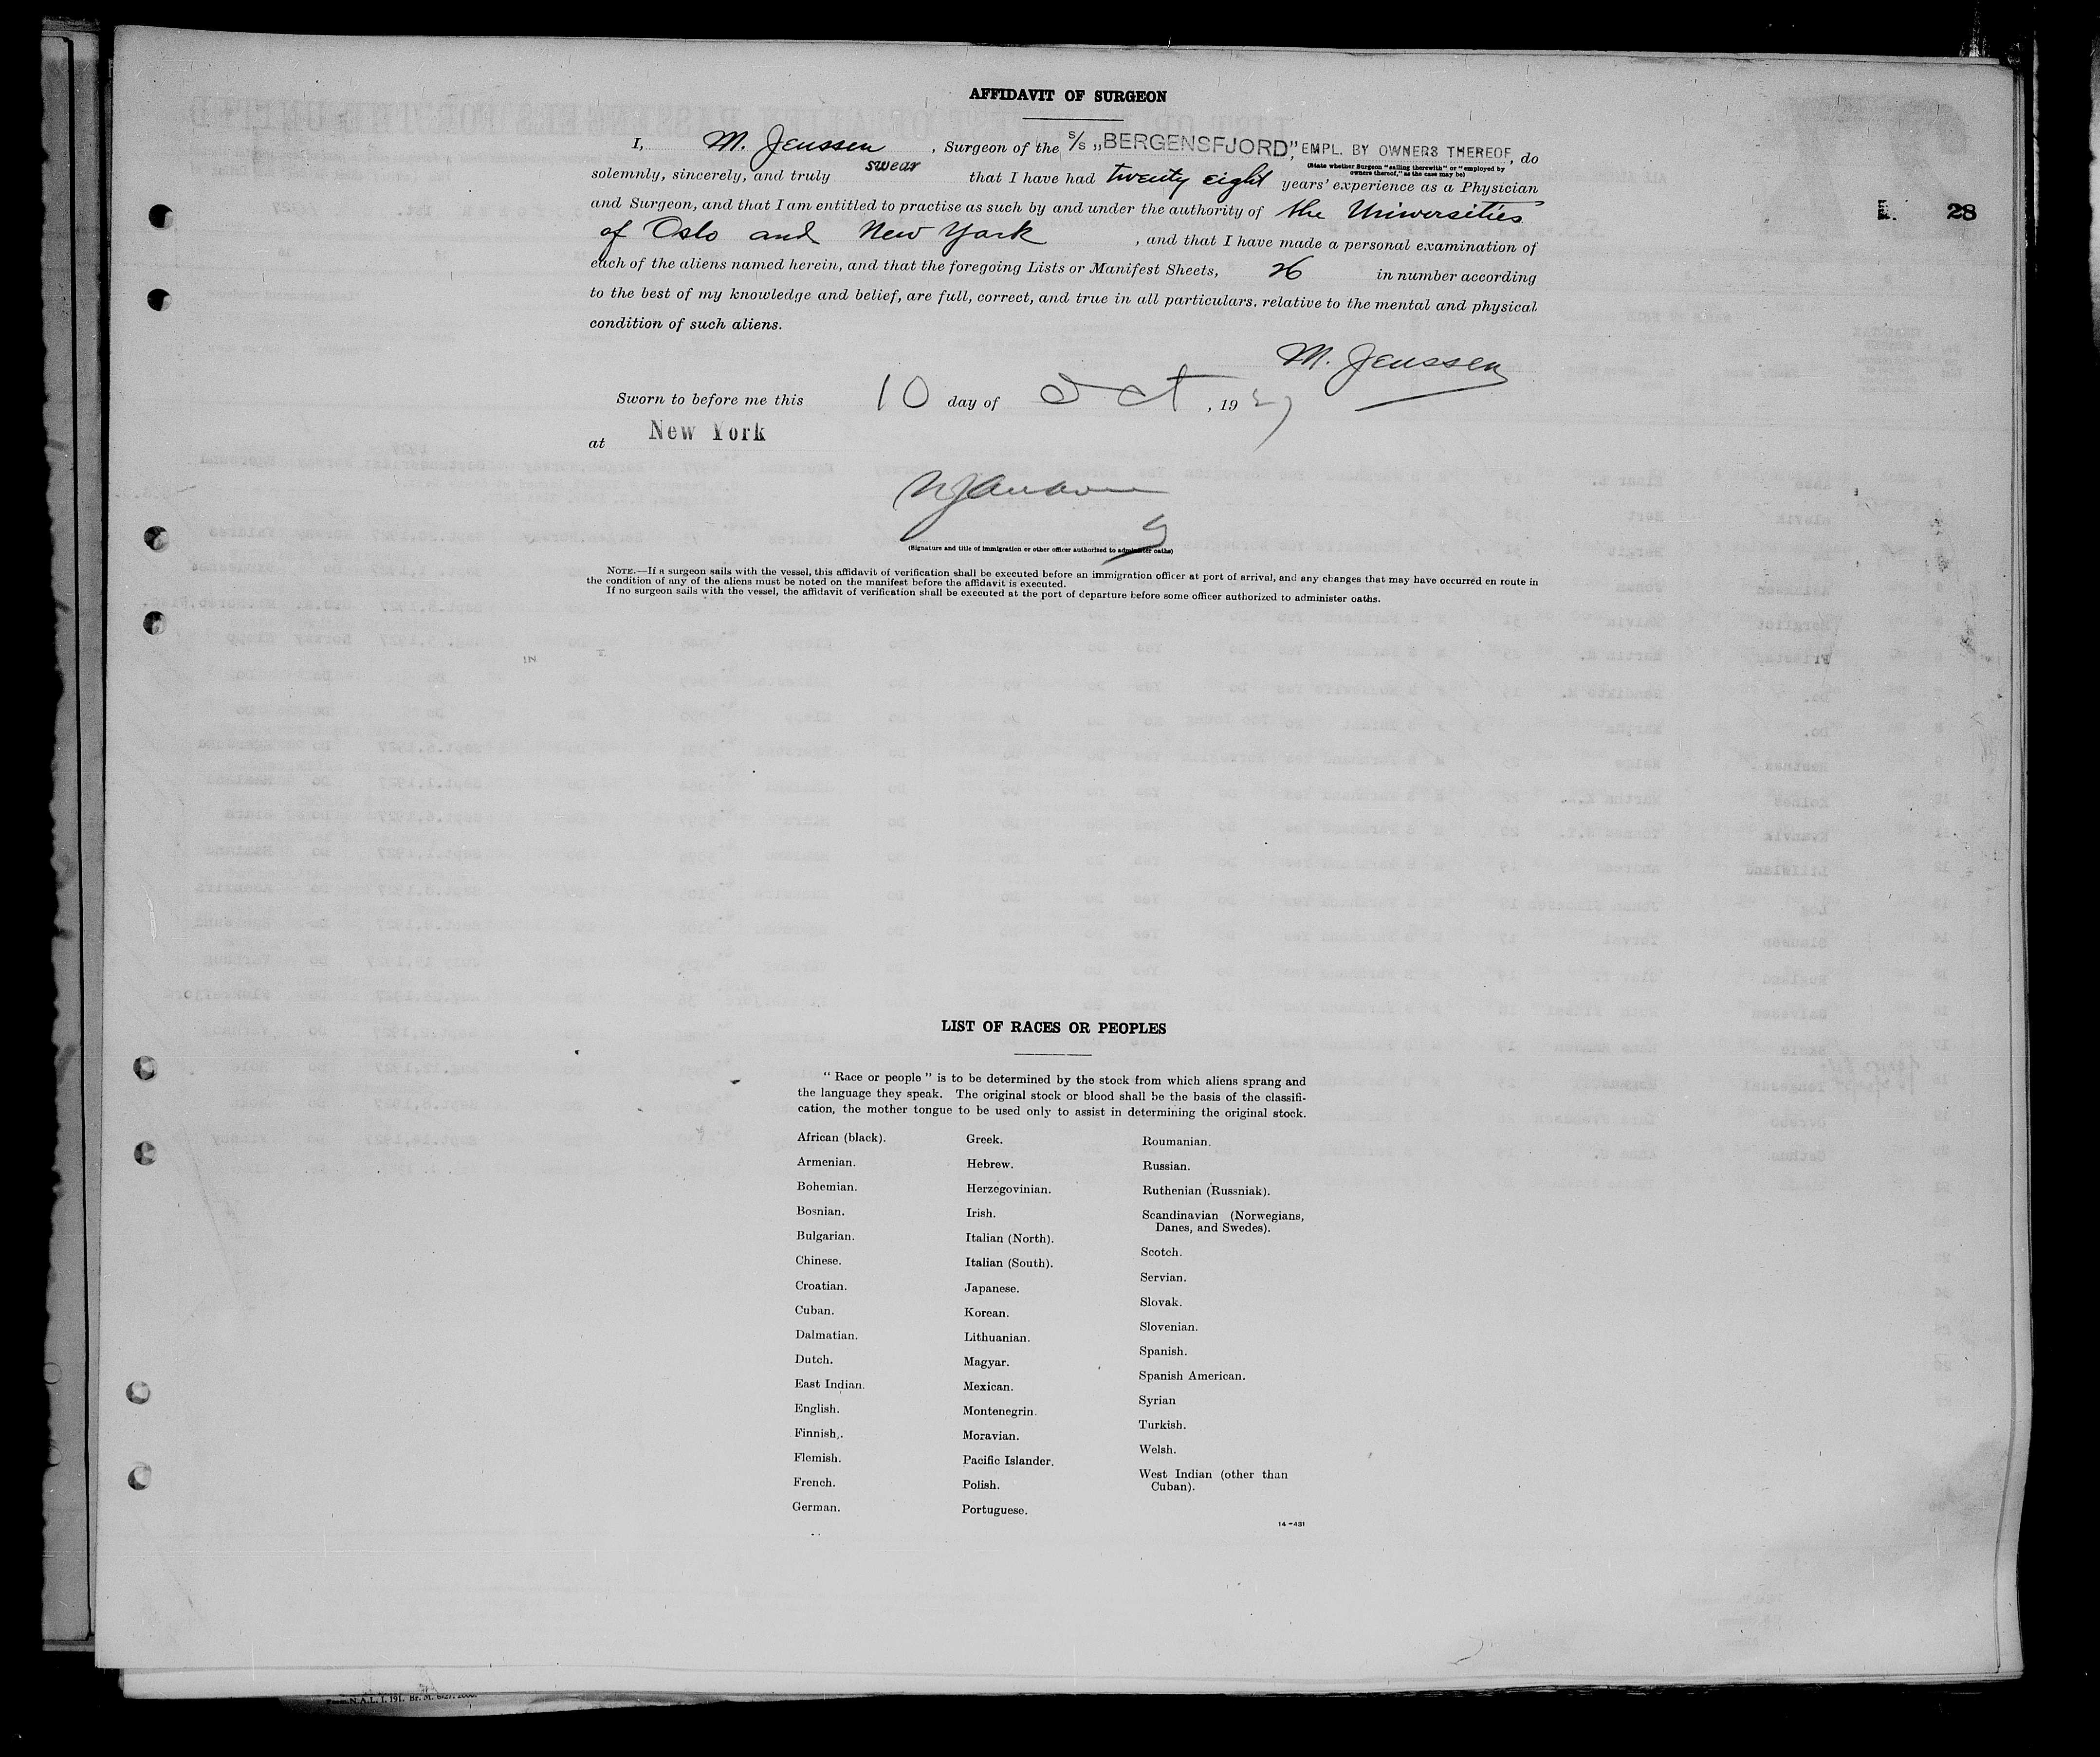 AFFIDAVIT OF SURGEON
I, M. Jenssen, Surgeon of the s/s „BERGENSFJORD”, EMPL. BY OWNERS THEREOF, do
(State whether Surgeon “sailing therewith” or “employed by owners thereof,” as the case may be)
solemnly, sincerely, and truly swear that I have had twenty eight years’ experience as a Physician
and Surgeon, and that I am entitled to practise as such by and under the authority of the Universities
of Oslo and New York, and that I have made a personal examination of
each of the aliens named herein, and that the foregoing Lists or Manifest Sheets, 26 in number according
to the best of my knowledge and belief, are full, correct, and true in all particulars, relative to the mental and physical
condition of such aliens.
28
M. Jenssen
Sworn to before me this 10 day of Oct, 1927
at New York
(Signature and title of immigration or other officer authorized to administer oaths)
NOTE.—If a surgeon sails with the vessel, this affidavit of verification shall be executed before an immigration officer at port of arrival, and any changes that may have occurred en route in
the condition of any of the aliens must be noted on the manifest before the affidavit is executed.
If no surgeon sails with the vessel, the affidavit of verification shall be executed at the port of departure before some officer authorized to administer oaths.
LIST OF RACES OR PEOPLES
“Race or people” is to be determined by the stock from which aliens sprang and
the language they speak. The original stock or blood shall be the basis of the classifi-
cation, the mother tongue to be used only to assist in determining the original stock.
African (black).
Armenian.
Bohemian.
Bosnian.
Bulgarian.
Chinese.
Croatian.
Cuban.
Dalmatian.
Dutch.
East Indian.
English.
Finnish.
Flemish.
French.
German.
Greek.
Hebrew.
Herzegovinian.
Irish.
Italian (North).
Italian (South).
Japanese.
Korean.
Lithuanian.
Magyar.
Mexican.
Montenegrin.
Moravian.
Pacific Islander.
Polish.
Portuguese.
Roumanian.
Russian.
Ruthenian (Russniak).
Scandinavian (Norwegians,
Danes, and Swedes).
Scotch.
Servian.
Slovak.
Slovenian.
Spanish.
Spanish American.
Syrian
Turkish.
Welsh.
West Indian (other than
Cuban).
14—431